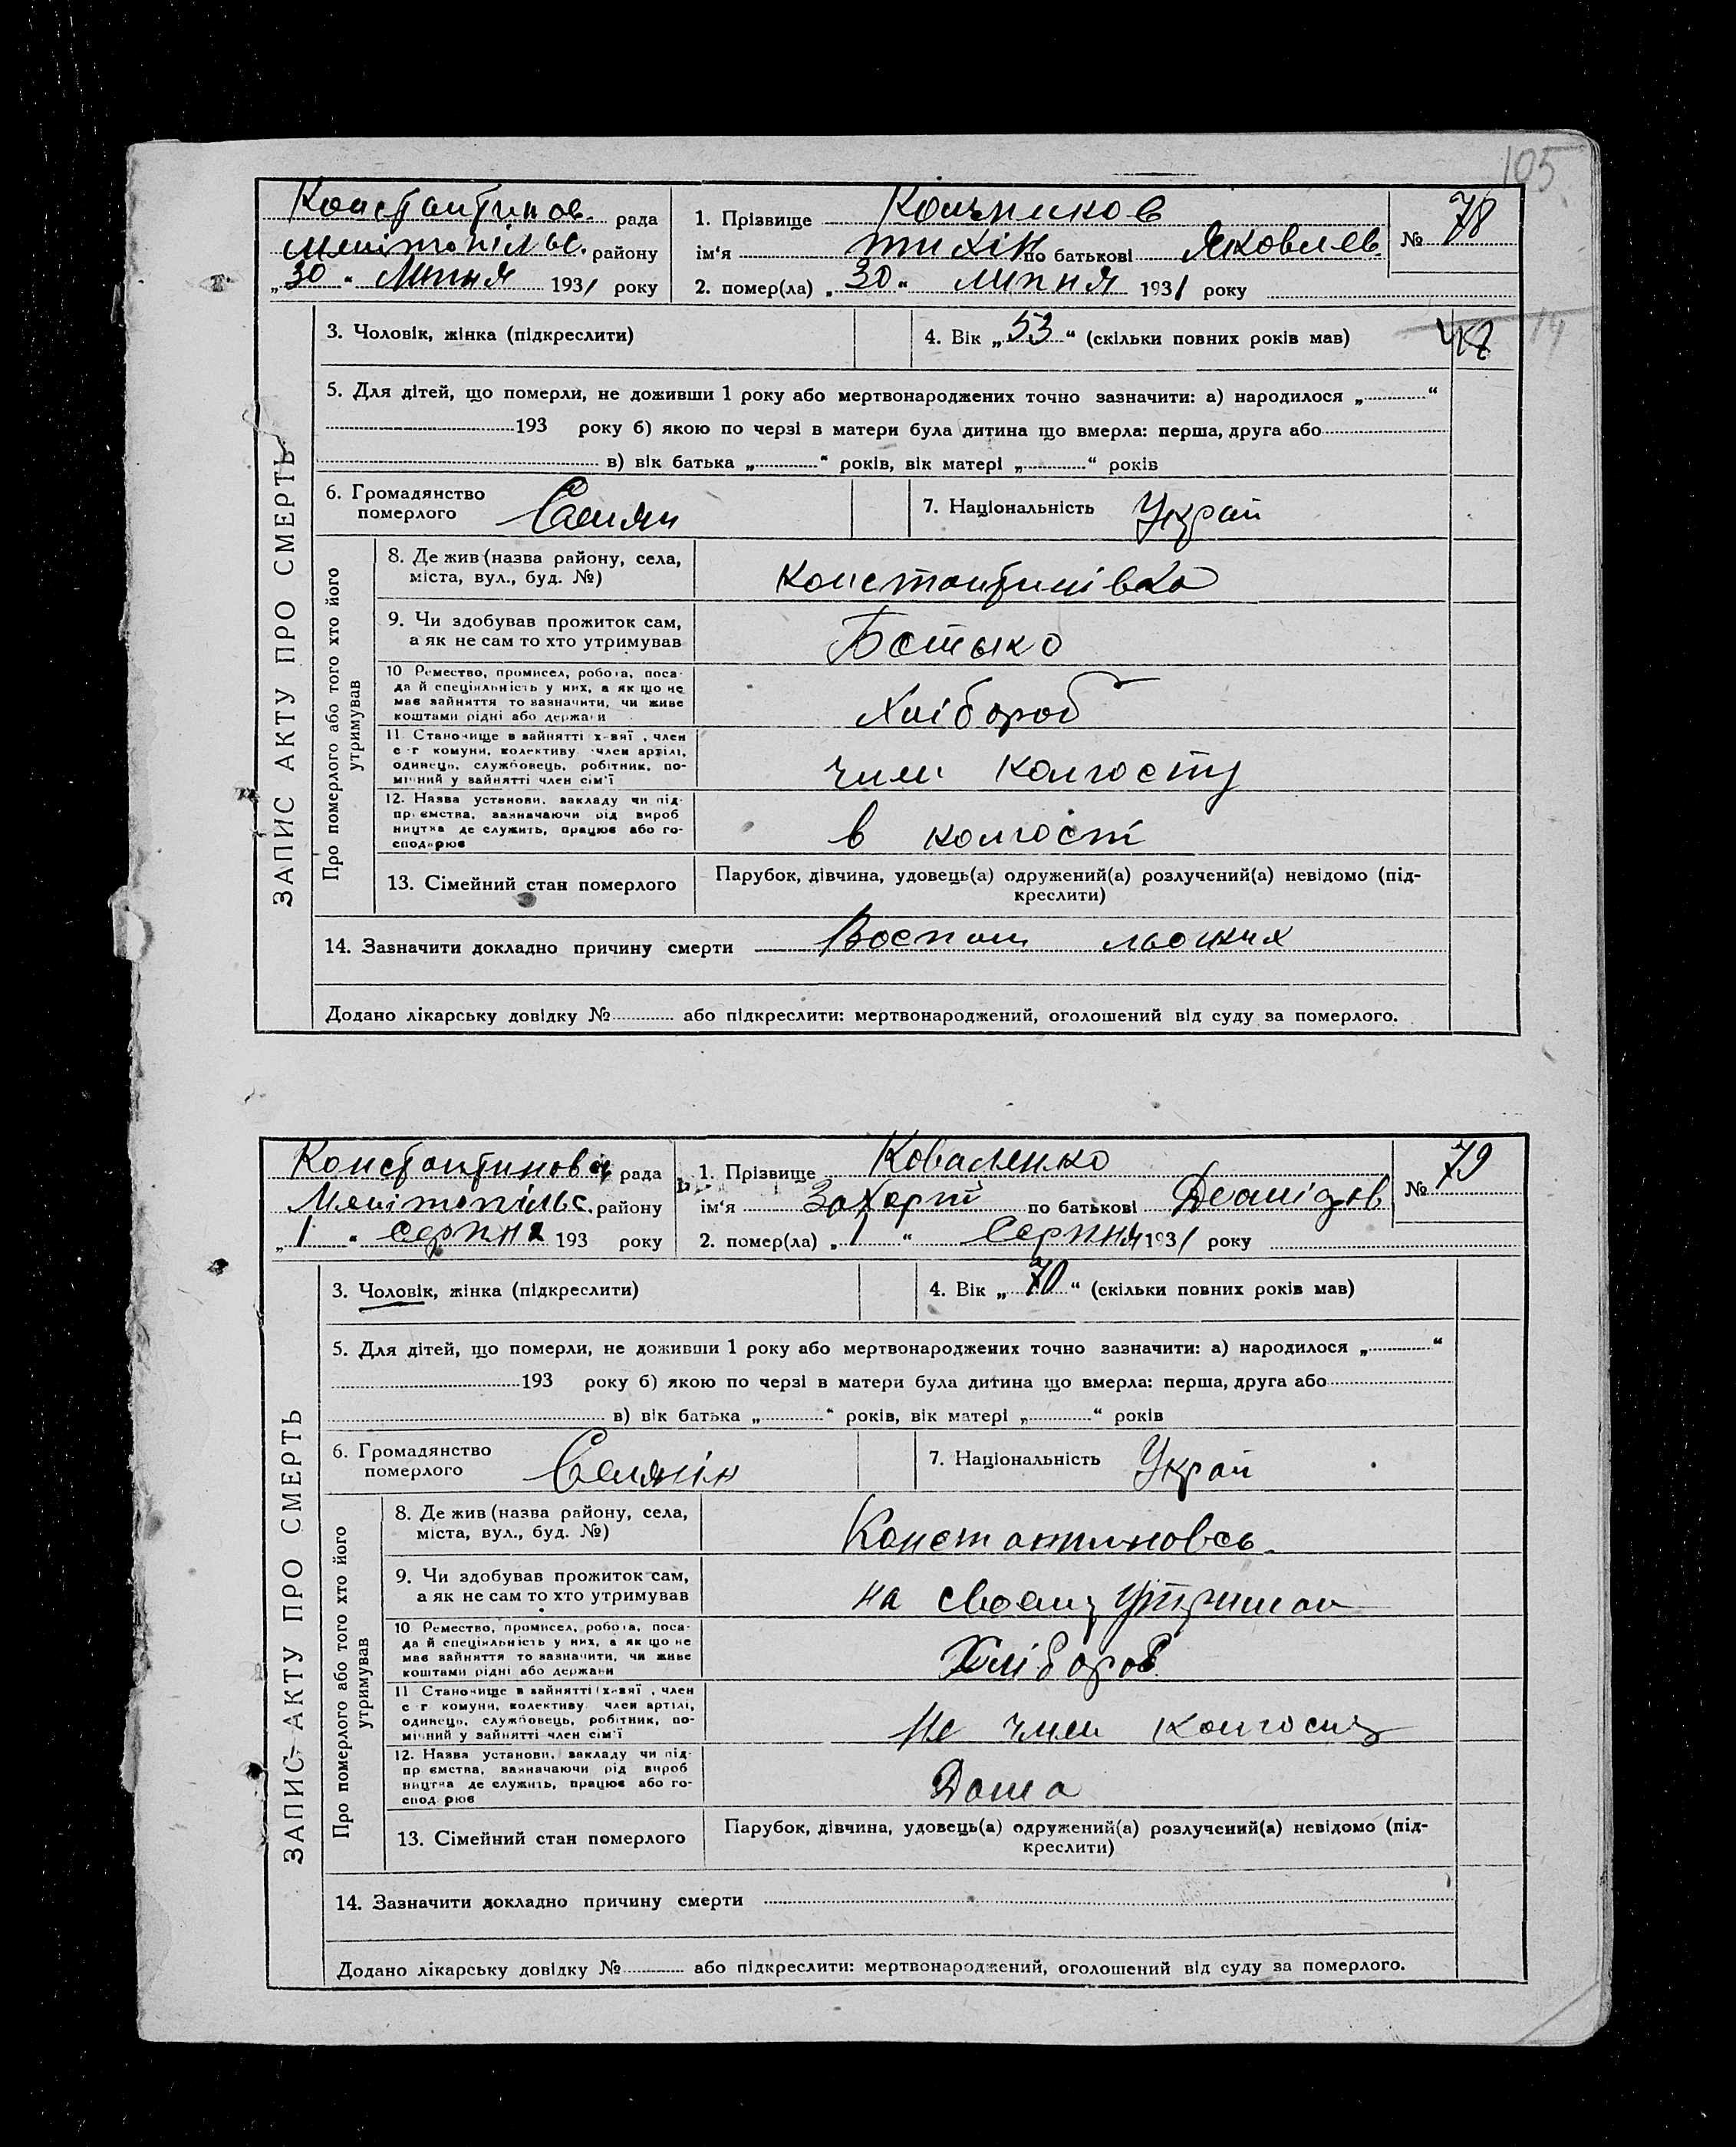 105
Константинов. рада
Мелітопільс. району
„30“ Липня 1931 року
1. Прізвище
ім'я Тихін по батькові Яковлев.
2. помер(ла) „30“ липня 1931 року
№ 78
ЗАПИС АКТУ ПРО СМЕРТЬ
3. Чоловік, жінка (підкреслити)
4. Вік „53“ (скільки повних років мав)
14
5. Для дітей, що померли, не доживши 1 року або мертвонароджених точно зазначити: а) народилося „ “
193 року б) якою по черзі в матери була дитина що вмерла: перша, друга або
в) вік батька „ “ років, вік матері „ “ років
6. Громадянство
померлого Селян
7. Національність Украй
Про померлого або того хто його
утримував
8. Де жив (назва району, села,
міста, вул., буд. №)
Константинівка
9. Чи здобував прожиток сам,
а як не сам то хто утримував
10 Ремество, промисел, робота, поса-
да й спеціяльність у них, а як що не
має зайняття то зазначити, чи живе
коштами рідні або держави
Хлібороб
11 Становище в зайнятті х-вяї, член
с г комуни, колективу член артілі,
одинець, службовець, робітник, по-
мічний у зайнятті член сім'ї
член колгоспу
12. Назва установи, закладу чи під-
приємства, зазначаючи рід вироб
ництва де служить, працює або го-
сподарює
в колгосп
13. Сімейний стан померлого
Парубок, дівчина, удовець(а) одружений(а) розлучений(а) невідомо (під-
креслити)
14. Зазначити докладно причину смерти Воспал льогких
Додано лікарську довідку № або підкреслити: мертвонароджений, оголошений від суду за померлого.
Константинов рада
Мелітопільс. району
„1“ Серпня 193 року
1. Прізвище Коваленко
ім'я Захарій по батькові
2. помер(ла) „1“ Серпня 1931 року
№ 79
ЗАПИС АКТУ ПРО СМЕРТЬ
3. Чоловік, жінка (підкреслити)
4. Вік „70“ (скільки повних років мав)
5. Для дітей, що померли, не доживши 1 року або мертвонароджених точно зазначити: а) народилося „ “
193 року б) якою по черзі в матери була дитина що вмерла: перша, друга або
в) вік батька „ “ років, вік матері „ “ років
6. Громадянство
померлого Селянін
7. Національність Украй
Про померлого або того хто його
утримував
8. Де жив (назва району, села,
міста, вул., буд. №)
9. Чи здобував прожиток сам,
а як не сам то хто утримував
на своему утриман
10 Ремество, промисел, робота, поса-
да й спеціяльність у них, а як що не
має зайняття то зазначити, чи живе
коштами рідні або держави
Хлібороб
11 Становище в зайнятті х-вяї, член
с г комуни, колективу член артілі,
одинець, службовець, робітник, по-
мічний у зайнятті член сім'ї
Не член колгоспу
12. Назва установи, закладу чи під-
приємства, зазначаючи рід вироб
ництва де служить, працює або го-
сподарює
Дома
13. Сімейний стан померлого
Парубок, дівчина, удовець(а) одружений(а) розлучений(а) невідомо (під-
креслити)
14. Зазначити докладно причину смерти
Додано лікарську довідку № або підкреслити: мертвонароджений, оголошений від суду за померлого.